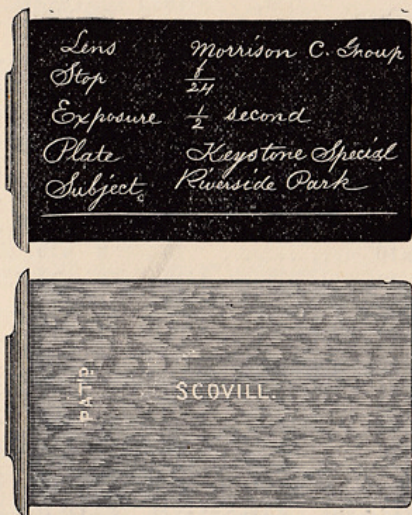 Lens Morrison C. Group
Stop f/24
Exposure 1/2 second
Plate Keystone Special
Subject Riverside Park
PAT'D
SCOVILL.